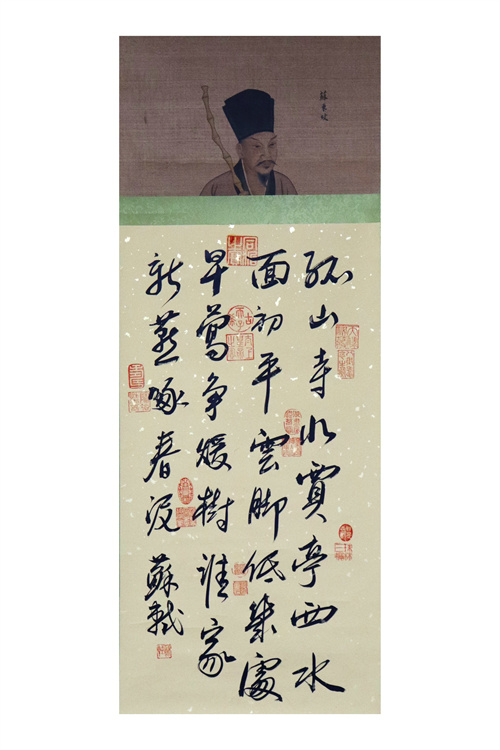 蘇東坡
孤山寺北賈亭西水
面初平雲脚低幾處
早鶯争暖樹誰家
新燕啄春泥 蘇軾